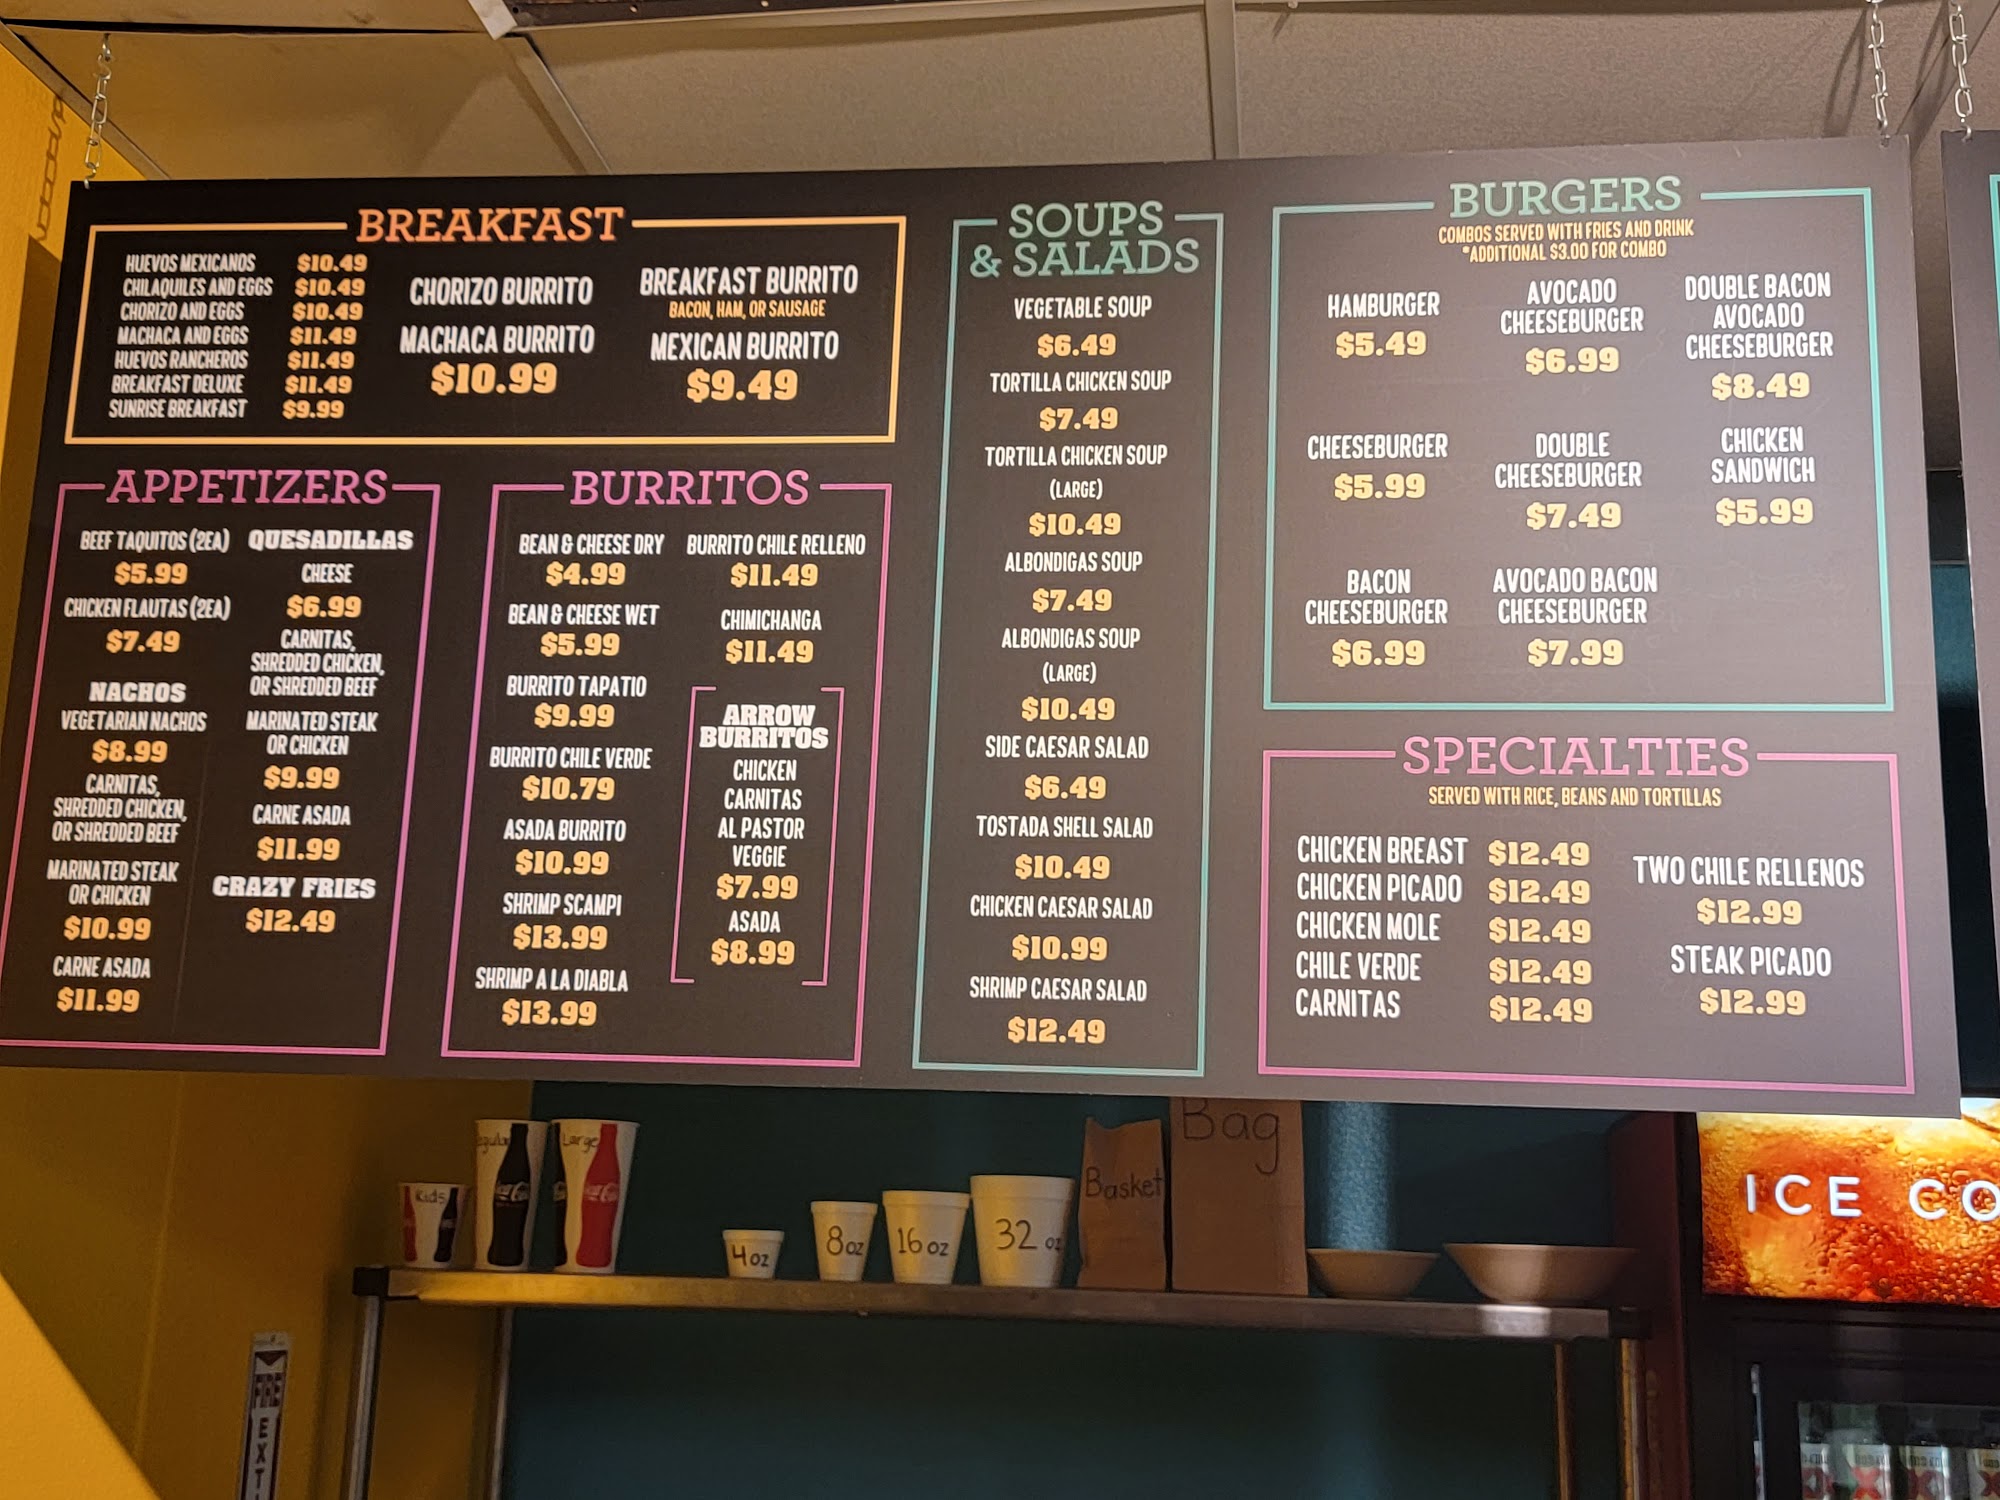 BREAKFAST
HUEVOS MEXICANOS $10.49
CHILAQUILES AND EGGS $10.49
CHORIZO AND EGGS $10.49
MACHACA AND EGGS $11.49
HUEVOS RANCHEROS $11.49
BREAKFAST DELUXE $11.49
SUNRISE BREAKFAST $9.99
CHORIZO BURRITO
MACHACA BURRITO
$10.99
BREAKFAST BURRITO
BACON, HAM, OR SAUSAGE
MEXICAN BURRITO
$9.49
APPETIZERS
BEEF TAQUITOS (2EA)
$5.99
CHICKEN FLAUTAS (2EA)
$7.49
NACHOS
VEGETARIAN NACHOS
$8.99
CARNITAS,
SHREDDED CHICKEN,
OR SHREDDED BEEF
MARINATED STEAK
OR CHICKEN
$10.99
CARNE ASADA
$11.99
QUESADILLAS
CHEESE
$6.99
CARNITAS,
SHREDDED CHICKEN,
OR SHREDDED BEEF
MARINATED STEAK
OR CHICKEN
$9.99
CARNE ASADA
$11.99
CRAZY FRIES
$12.49
BURRITOS
BEAN & CHEESE DRY
$4.99
BEAN & CHEESE WET
$5.99
BURRITO TAPATIO
$9.99
BURRITO CHILE VERDE
$10.79
ASADA BURRITO
$10.99
SHRIMP SCAMPI
$13.99
SHRIMP A LA DIABLA
$13.99
BURRITO CHILE RELLENO
$11.49
CHIMICHANGA
$11.49
ARROW
BURRITOS
CHICKEN
CARNITAS
AL PASTOR
VEGGIE
$7.99
ASADA
$8.99
SOUPS
& SALADS
VEGETABLE SOUP
$6.49
TORTILLA CHICKEN SOUP
$7.49
TORTILLA CHICKEN SOUP
(LARGE)
$10.49
ALBONDIGAS SOUP
$7.49
ALBONDIGAS SOUP
(LARGE)
$10.49
SIDE CAESAR SALAD
$6.49
TOSTADA SHELL SALAD
$10.49
CHICKEN CAESAR SALAD
$10.99
SHRIMP CAESAR SALAD
$12.49
BURGERS
COMBOS SERVED WITH FRIES AND DRINK
*ADDITIONAL $3.00 FOR COMBO
HAMBURGER
$5.49
AVOCADO
CHEESEBURGER
$6.99
DOUBLE BACON
AVOCADO
CHEESEBURGER
$8.49
CHEESEBURGER
$5.99
DOUBLE
CHEESEBURGER
$7.49
CHICKEN
SANDWICH
$5.99
BACON
CHEESEBURGER
$6.99
AVOCADO BACON
CHEESEBURGER
$7.99
SPECIALTIES
SERVED WITH RICE, BEANS AND TORTILLAS
CHICKEN BREAST $12.49
CHICKEN PICADO $12.49
CHICKEN MOLE $12.49
CHILE VERDE $12.49
CARNITAS $12.49
TWO CHILE RELLENOS
$12.99
STEAK PICADO
$12.99
Kids
Large
Coca-Cola
4 oz
8 oz
16 oz
32 oz
Basket
Bag
ICE CO